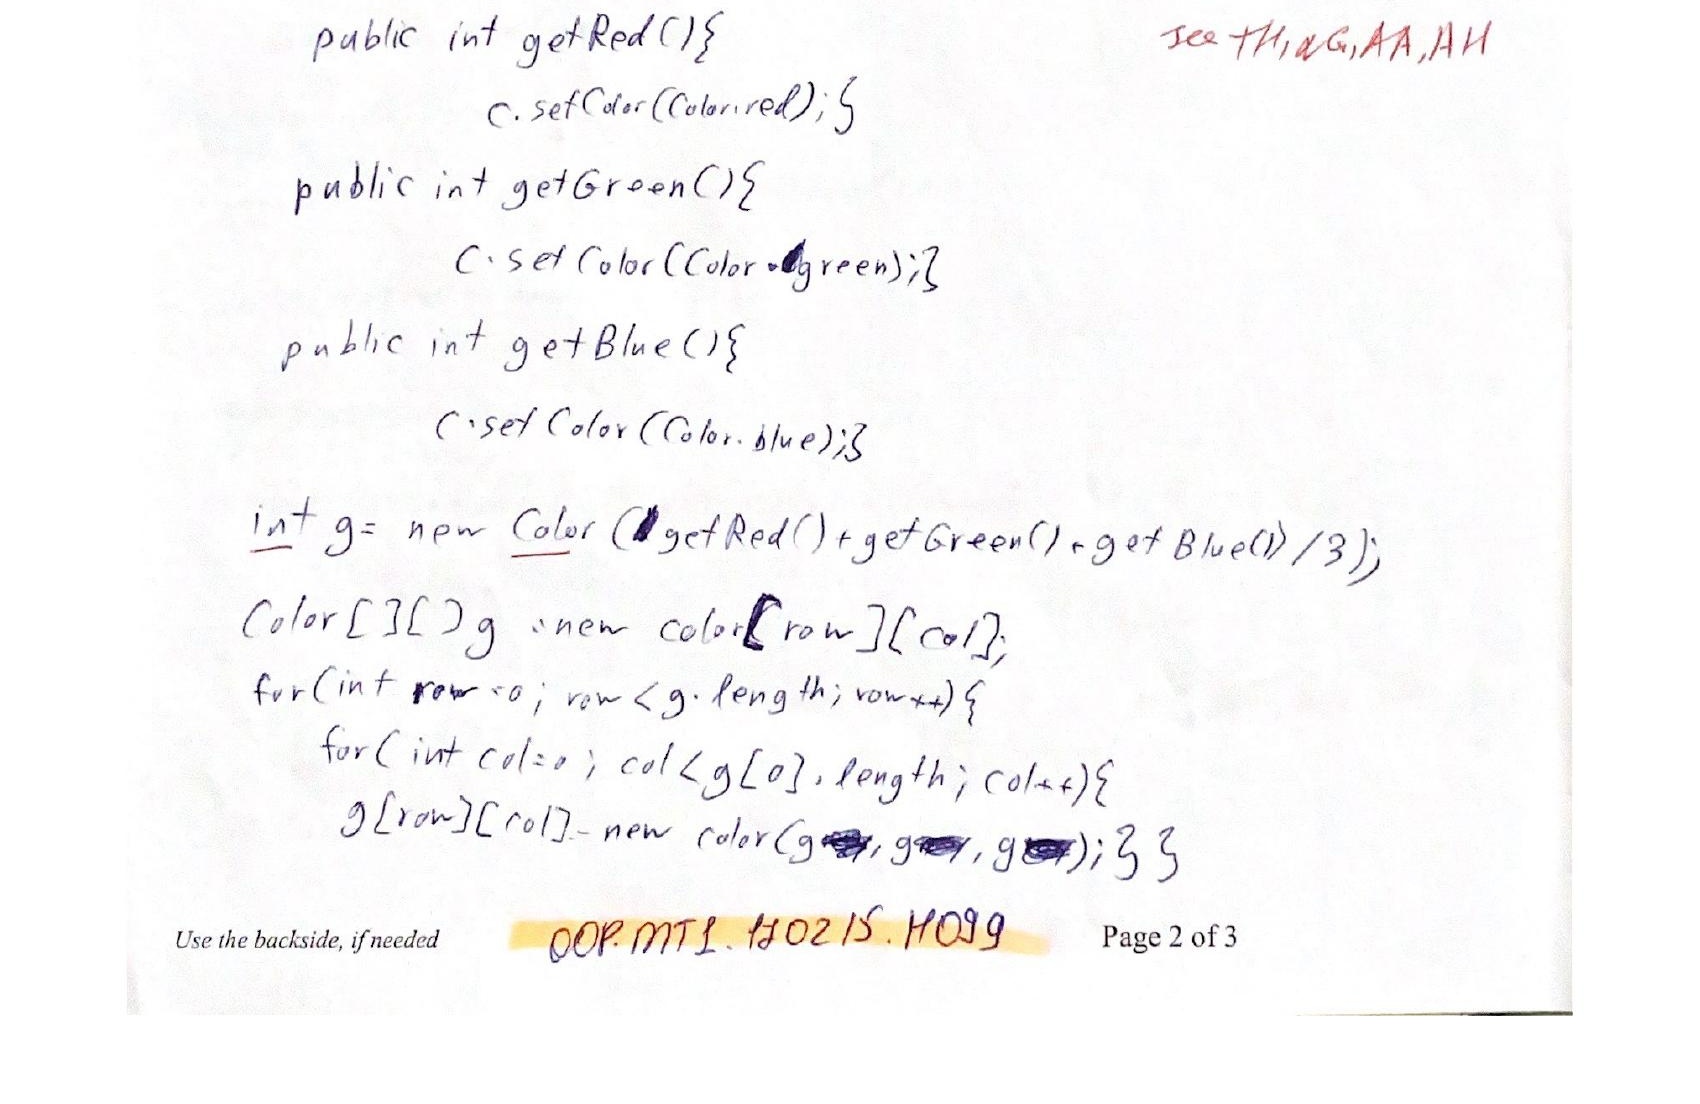 public int getRed(){
see tH, aG, AA, AH
c.setColor(Color.red);}
public int getGreen(){
c.setColor(Color.green);}
public int getBlue(){
c.setColor(Color.blue);}
int g= new Color (getRed()+getGreen()+getBlue())/3);
Color[][]g =new color[row][col];
for(int row=0; row<g.length; row++){
for(int col=0; col<g[0].length; col++){
g[row][col]=new color(g, g, g);}}
Use the backside, if needed
OOP.MT1.170215.H099
Page 2 of 3